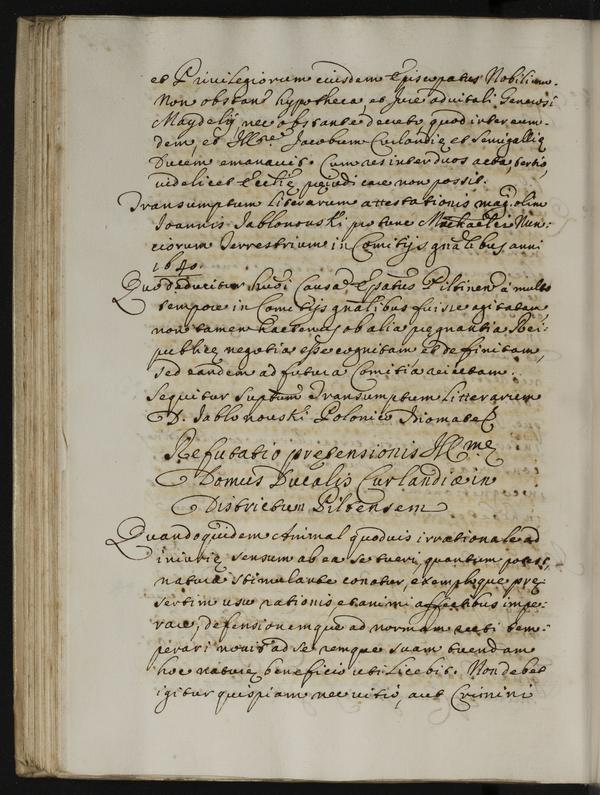 et Privilegiorum eiusdem Episcopatus Nobilium.
Non obstante hypotheca, et Jure advitali Generosi
Maydelij nec obstante decreto quod inter eun-
dem, et Jll̃re Jacobum Curlandię et Semigallię
Ducem emanavit. Cum res inter duos acta, tertio,
videlicet Ecclię pręjudicare non possit.
Transumptum Literarum attestationis mag: olim
Joannis Jablonouski pro tunc Nun:
ciorum Terrestrium in Comitijs gnãlibus anni
1640.
Quo deducitur hui9 Causã Epatus Piltinen̄ a multo
tempore in Comitijs gnalibus fuisse agitatam,
non tamen hactenus ob alia pręgnantia Rei:
publicę negotia esse cognitam et deffinitam,
sed eandem ad futura Comitia reiectam.
Sequitur Transumptum Litterarum
D. Jablonouski Polonico Idiomate
Refutatio prętensionis Jll.mę
Domus Ducalis Curlandiæ in
Districtum Piltensem
Quandoquidem Animal quodvis irrationale ad
iniurię sensum ab ea se tueri, quantum potest,
natura stimulante conatur, exemploque pręz
sertim usu rationis et animi affectibus impe:
rare, defensionemque ad normam recti tem:
perari novit ad se remque suam tuendam
hoc naturę beneficio uti Licebit. Non debet
igitur quispiam nec vitio, aut Crimini